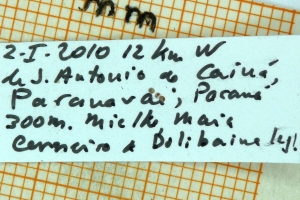 mm
2-I-2010 12 km W
de S. Antonio do Caiuá,
Paranavaí, Paraná
300m. Mielke, Maia
Cerneiro & Dolibaina leg.